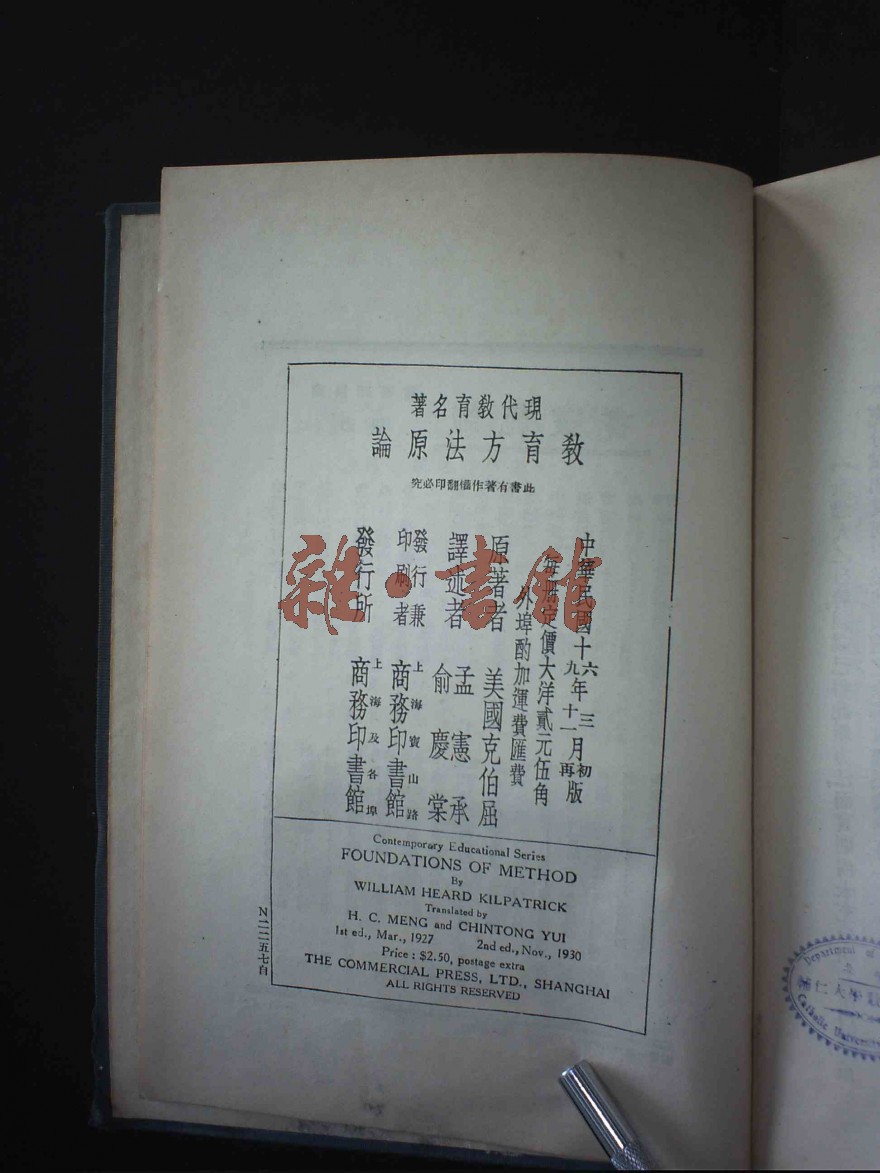 現代教育名著
教育方法原論
此書有著作權翻印必究
中華民國十六年三月初版
九十一再
每冊定價大洋貳元伍角
外埠酌加運費匯費
原著者 美國克伯屈
譯述者 孟憲承
俞慶棠
發行兼印刷者 上海寶山路
商務印書館
發行所 上海及各埠
商務印書館
Contemporary Educational Series
FOUNDATIONS OF METHOD
By
WILLIAM HEARD KILPATRICK
Translated by
H. C. MENG and CHINTONG YUI
1st ed., Mar., 1927 2nd ed., Nov., 1930
Price : $2.50, postage extra
THE COMMERCIAL PRESS, LTD., SHANGHAI
ALL RIGHTS RESERVED
N二二五七自
雜·書館
Department of
輔仁大學
Catholic